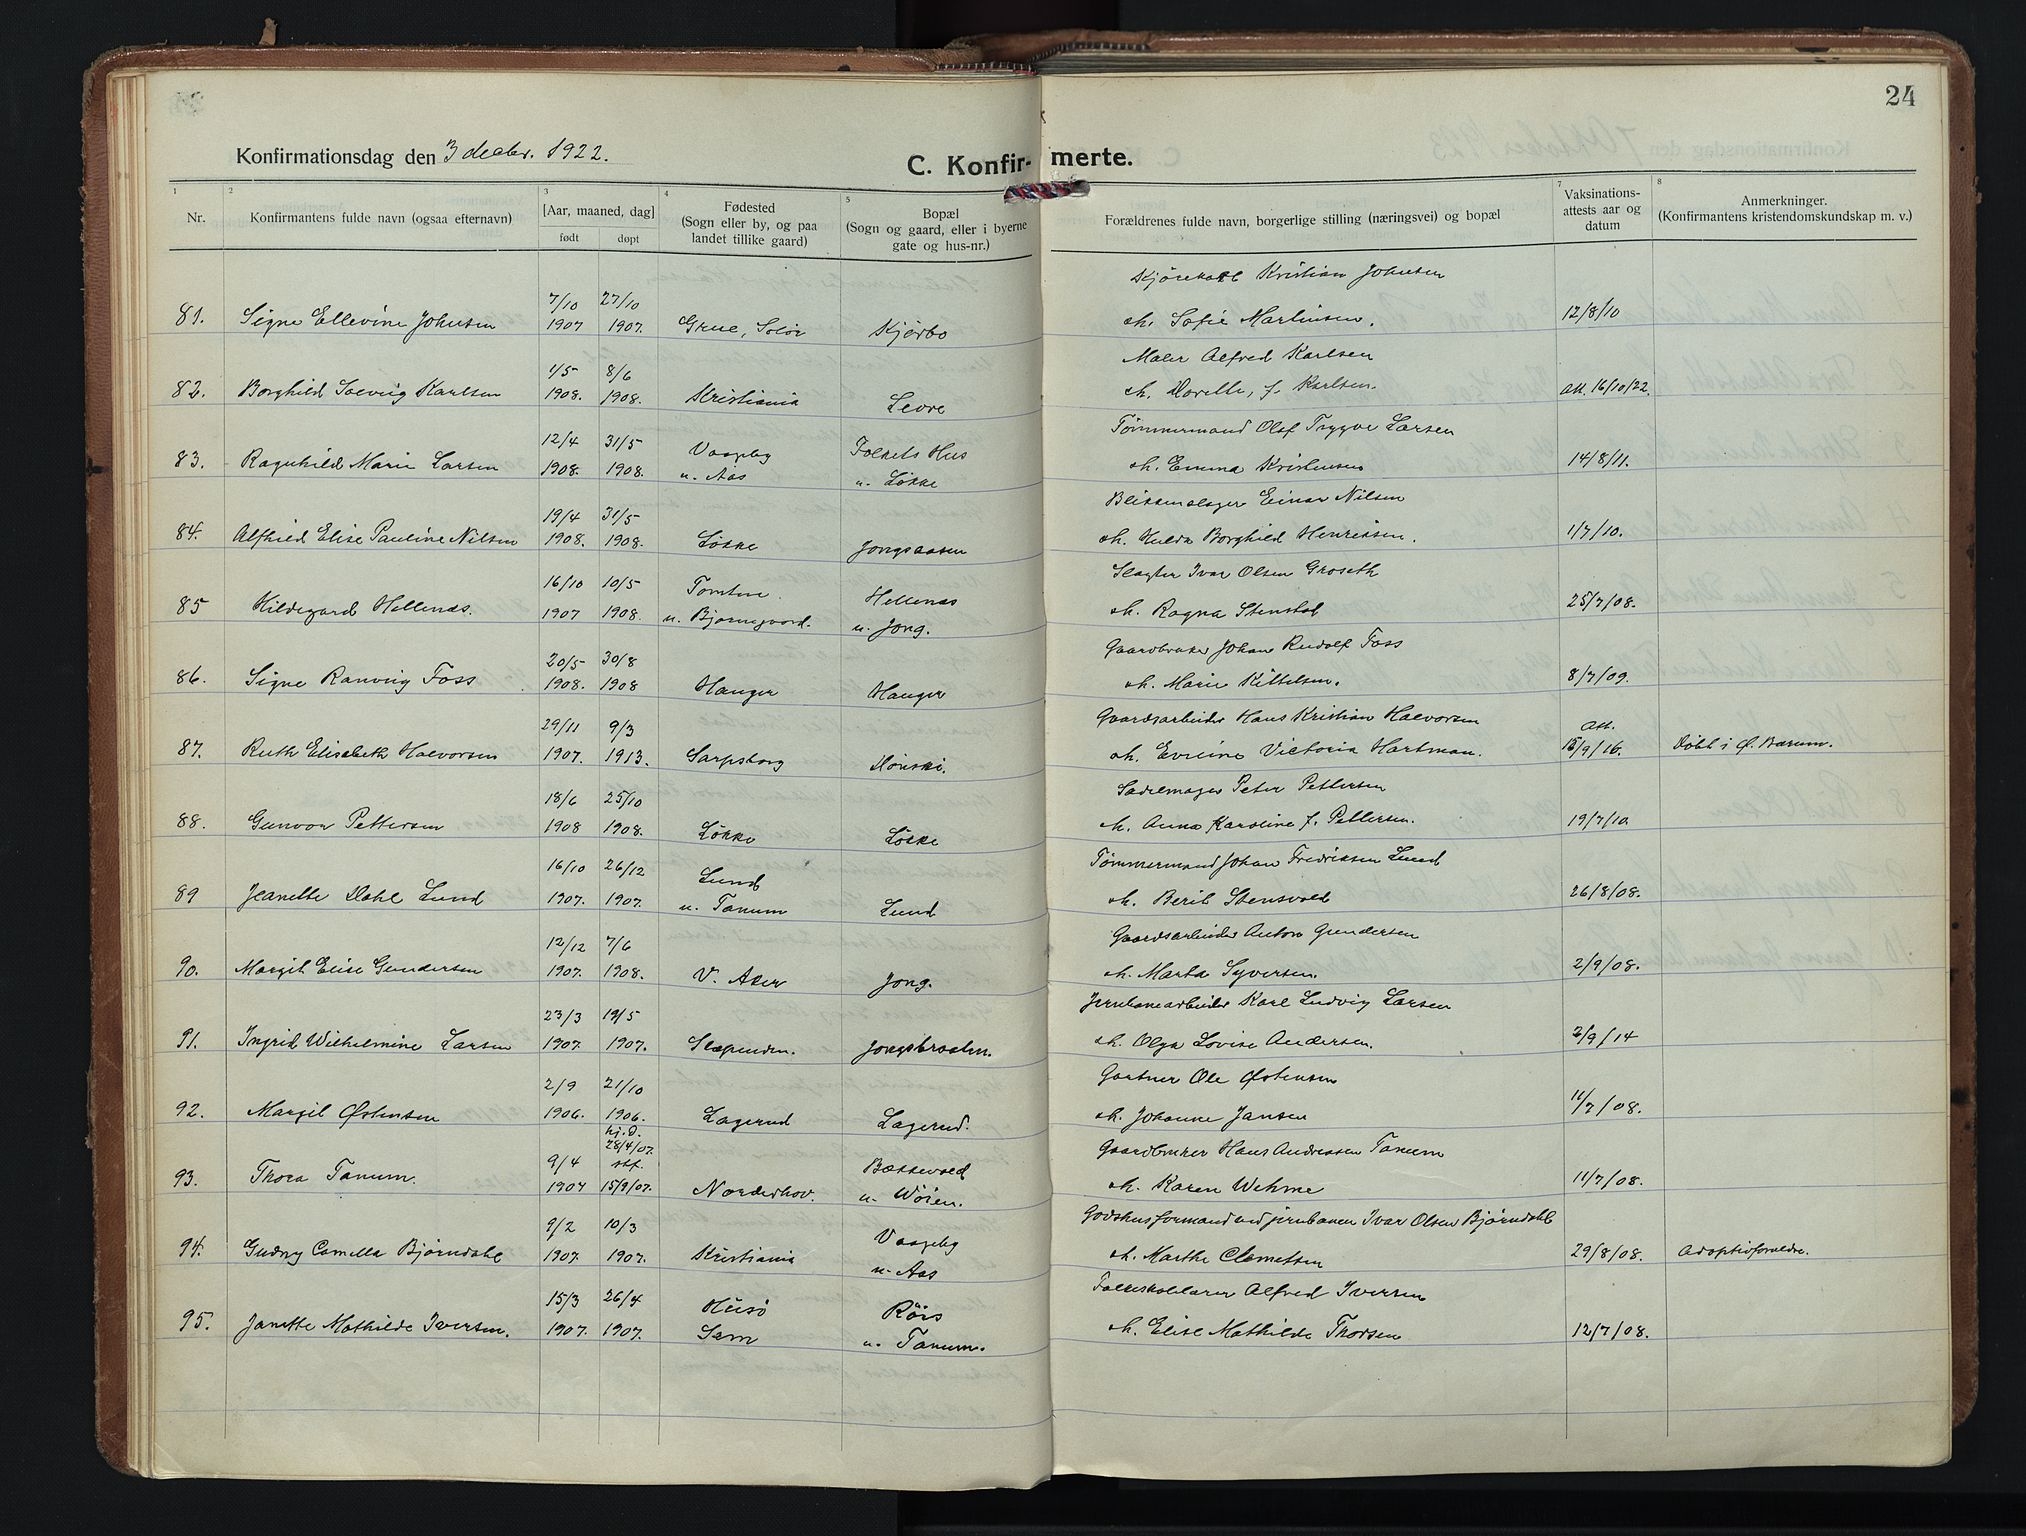 24
Konfirmationsdag den 3 decbr. 1922.
C. Konfir- merte.
1 2 3 4 5 7 8
Nr. Konfirmantens fulde navn (ogsaa efternavn) [Aar, maaned, dag] født døpt Fødested (Sogn eller by, og paa landet tillike gaard) Bopæl (Sogn og gaard, eller i byerne gate og hus-nr.) Forældrenes fulde navn, borgerlige stilling (næringsvei) og bopæl Vaksinations-attests aar og datum Anmerkninger. (Konfirmantens kristendomskundskap m. v.)
7/10 27/10 Kristian Johnsen
81. Signe Ellevine Johnsen 1907 1907. Grue, Solør Kjørbo m. Sofie Martinsen. 12/8/10
1/5 8/6 Maler Alfred Karlsen
82. Borghild Solveig Karlsen 1908. 1908. Kristiania Levre m. f. Karlsen. Att. 16/10/22.
12/4 31/5 Vaageby Folkets Hus Tømmermand Olaf Trygve Larsen
83. Ragnhild Marie Larsen 1908. 1908. u. Aas u. Løkke m. Emma Kristensen 14/8/11.
19/4 31/5 Blikkenslager Einar Nilsen
84. Alfhild Elise Pauline Nilsen 1908. 1908. Løkke Jongsaasen m. Hulda Borghild Henriksen. 1/7/10.
16/10 10/5 Tomten Hellenæs Slagter Ivar Olsen Groseth
85 Hildegard Hellenæs. 1907 1908. u. Bjørnegaard. u. Jong. m. Ragna Stensbøl 25/7/08.
20/5 30/8 Gaardbruker Johan Rudolf Foss
86. Signe Ranveig Foss 1908. 1908 Hauger Hauger m. Marie Kittelsen. 8/7/09.
29/11 9/3 Gaardsarbeider Hans Kristian Halvorsen Att.
87. Ruth Elisabeth Halvorsen 1907. 1913. Sarpsborg Hønski. m. Eveline Victoria Hartman. 15/9/16. Døbt i Ø. Bærum.
18/6 25/10 Sadelmager Peter Pettersen
88. Gunvor Pettersen 1908 1908. Løkke Løkke m. Anna Karoline f. Pettersen. 19/7/10
16/10 26/12 Lund Tømmermand Johan Fredriksen Lund
89 Jeanette Dahl Lund 1907. 1907. u. Tanum Lund m. Berit Stensvold 26/8/08.
12/12 7/6 Gaardsarbeider Anton Gundersen
90. Margit Elise Gundersen 1907. 1908. V. Aker Jong. m. Marta Syversen. 2/9/08.
23/3 19/5 Jernbanearbeider Karl Ludvig Larsen
91. Ingrid Wilhelmine Larsen 1907. 1907. Slependen. Jongsbraaten. m. Olga Lovise Andersen. 3/9/14
2/9 21/10 Gartner Ole Østensen
92. Margit Østensen 1906. 1906. Lagerud Lagerud. m. Johanne Jansen 11/7/08.
hj. d. 28/4/07.
9/4 stf. Bættevold Gaardbruker Hans Andreassen Tanum
93. Thora Tanum. 1907 15/9/07. Norderhov. u. Wøien. m. Karen Wehme 11/7/08.
9/2 10/3 Vaageby Godshusformand ved jernbanen Ivar Olsen Bjørndahl
94. Gudny Camilla Bjørndahl 1907. 1907. Kristiania u. Aas m. Marthe Clemetsen 29/8/08. Adoptivforældre.
15/3 26/4 Husø Røis Folkeskolelærer Alfred Iversen
95. Janette Mathilde Iversen. 1907. 1907. Sem u. Tanum. m. Elise Mathilde Thorsen 12/7/08.